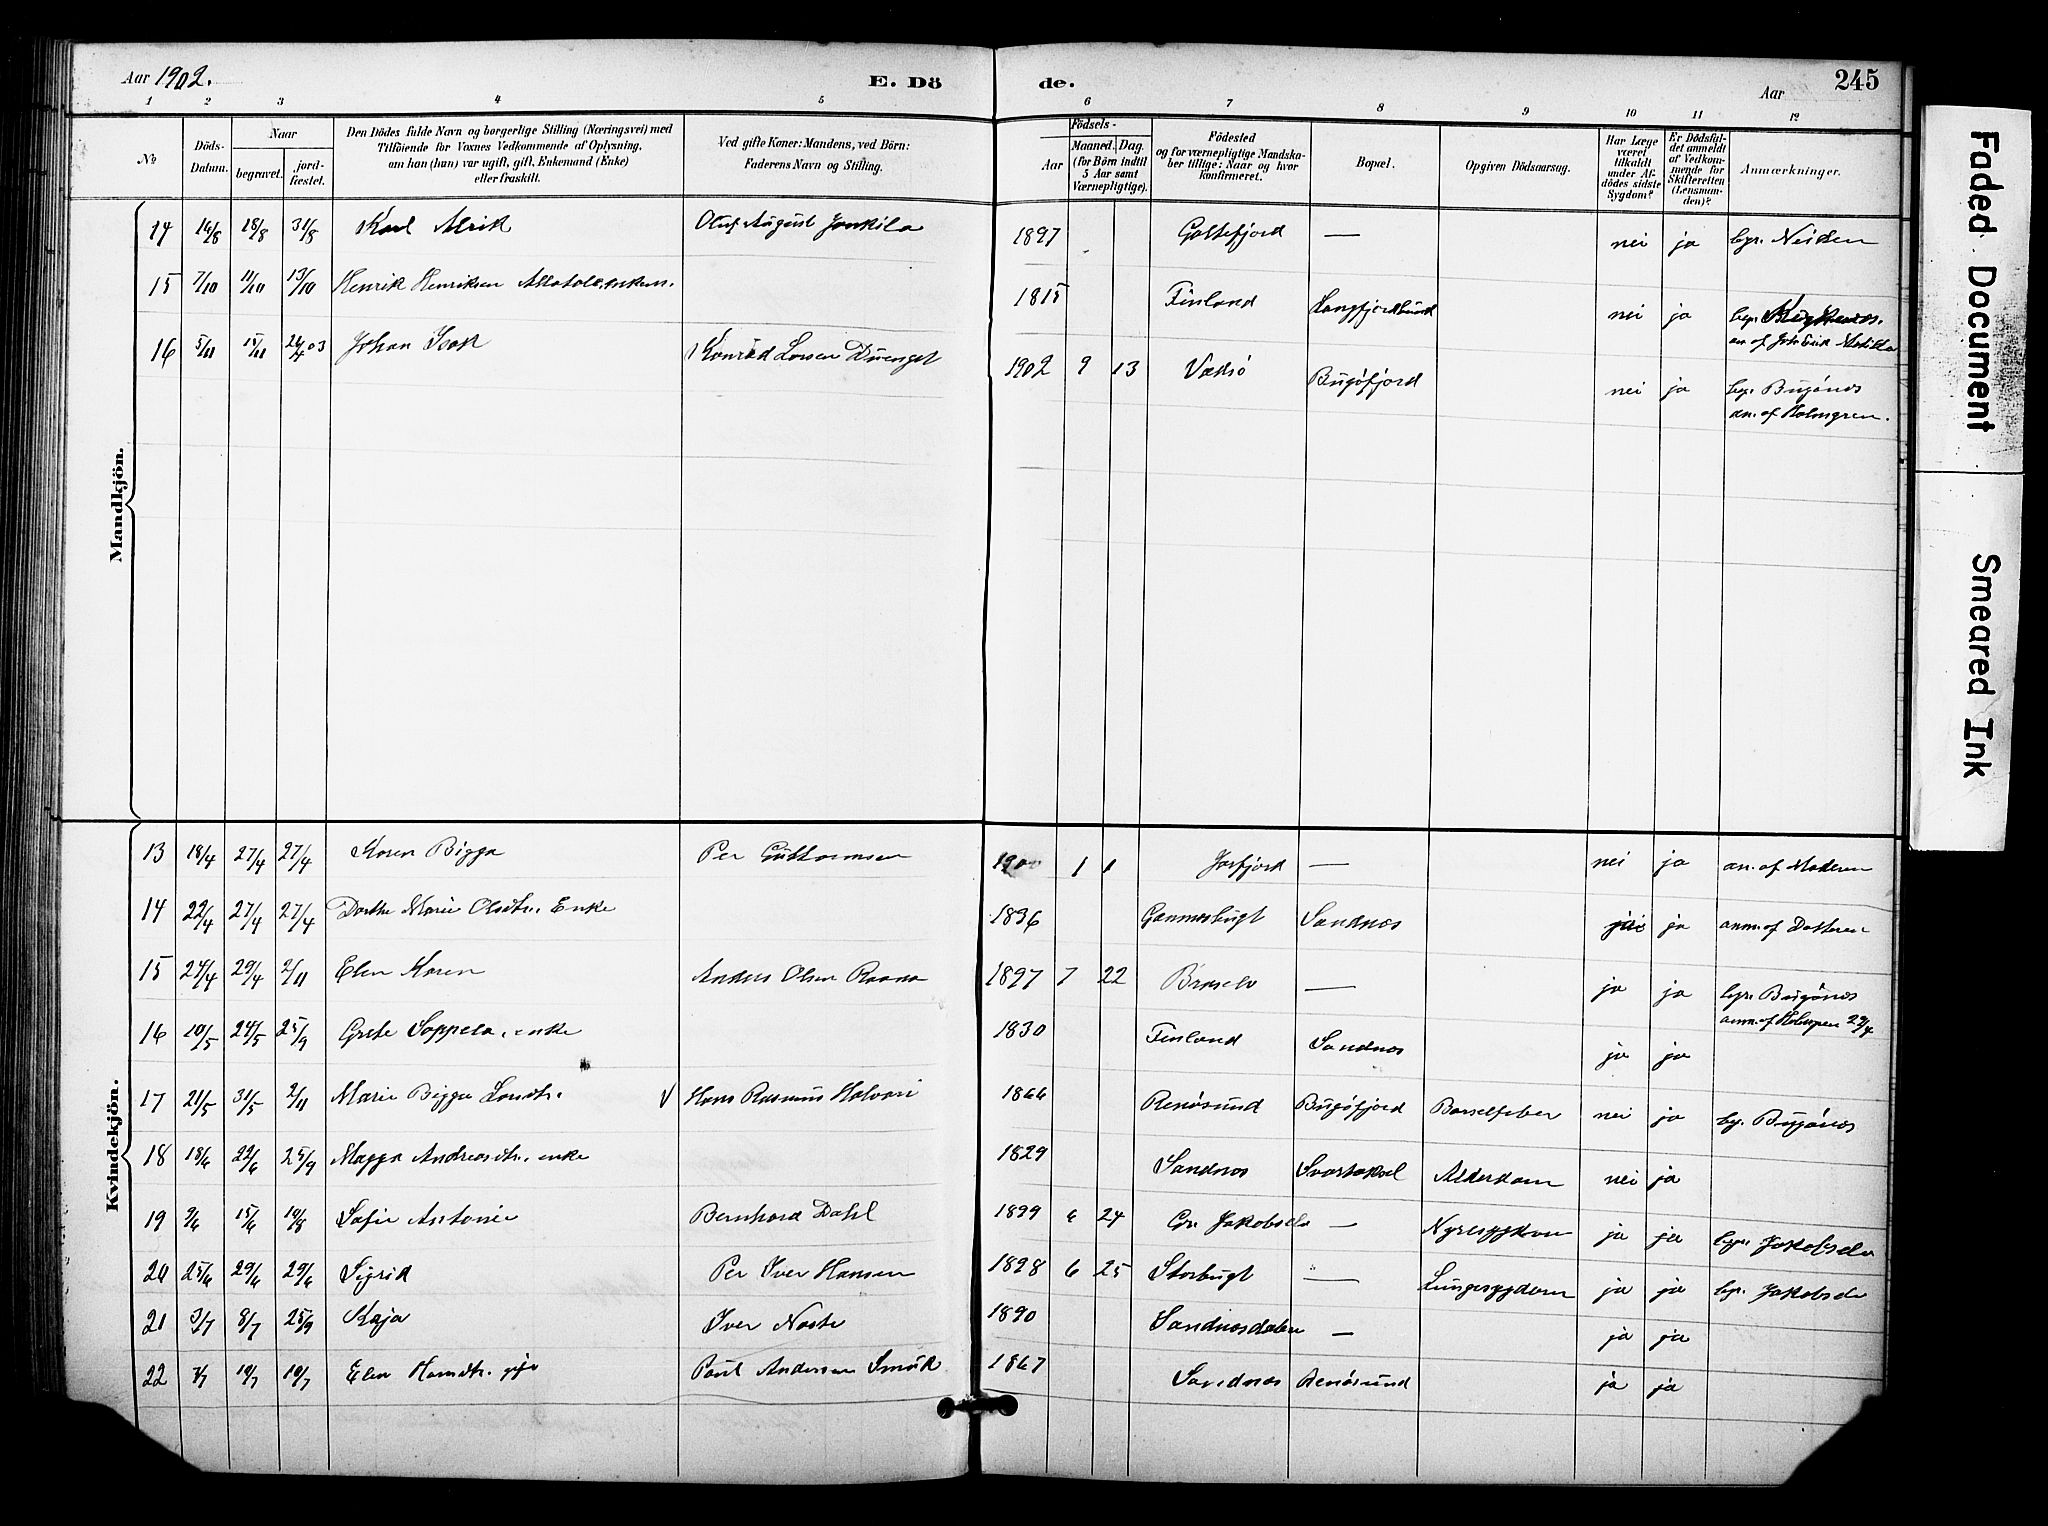 Aar 1902. E. Dö de. Aar 245
1 2 3 4 5 6 7 8 9 10 11 12
№ Döds-Datum. Naar begravet. jordfæstet. Den Dödes fulde Navn og borgerlige Stilling (Næringsvei) med Tilföiende for Voxnes Vedkommende af Oplysning, om han (hun) var ugift, gift, Enkemand (Enke) eller fraskilt. Ved gifte Koner: Mandens, ved Börn: Faderens Navn og Stilling. Födsels- Aar Maaned. Dag. (for Börn indtil 5 Aar samt Værnepligtige). Födested og for værnepligtige Mandskaber tillige: Naar og hvor konfirmeret. Bopæl. Opgiven Dödsaarsag. Har Læge været tilkaldt under Afdödes sidste Sygdom? Er Dödsfaldet anmeldt af Vedkommende for Skifteretten (Lensmanden)? Anmærkninger.
Mandkjön.
14 16/8 18/8 31/8 Karl Alrik Oluf August Jankila 1897 Goltefjord — nei ja bgr. Neiden
15 7/10 11/10 13/10 Henrik Henriksen 1815 Finland Langfjordbund nei ja bgr.
16 5/11 15/11 26/4 03 Johan Isak Konrad Larsen 1902 9 13 Vadsö Bugöfjord nei ja bgr. Bugönes
an. af Holmgren.
Kvindekjön.
13 18/4 27/4 27/4 Karen Bigga Per Guttormsen 1900 1 1 Jarfjord — nei ja an. af Moderen
14 22/4 27/4 27/4 Dorthe Marie Olsdtr. Enke 1836 Sandnes ja anm. af Datteren
15 24/4 29/4 2/11 Elen Karen Anders Olsen 1897 7 22 Braselv — ja ja bgr. Bugönes
anm. af Holmgren 29/4
16 10/5 24/5 25/9 Grete Soppela, enke 1830 Finland Sandnes ja ja
17 21/5 31/5 2/11 Marie Bigga V Hans Rasmus Halvari 1866 Renösund Bugöfjord Barselfeber nei ja bg. Bugönes
18 18/6 22/6 25/9 Magga Andreasdtr. enke 1829 Sandnes Alderdom nei ja
19 9/6 15/6 10/8 Sofie Antonie Bernhard Dahl 1899 6 24 Gr. Jakobselv — Nyresygdom ja ja bgr. Jakobselv
20 25/6 29/6 29/6 Sigrid Per Iver Hansen 1898 6 25 Storbugt — Lungesygdom ja ja bgr. Jakobselv
21 3/7 8/7 25/9 Kaja Iver Naste 1890 Sandnesdalen — ja ja
22 7/7 10/7 10/7 Elen Hansdtr. Paul Andersen Smuk 1867 Sandnes Renösund ja ja
Faded Document
Smeared Ink